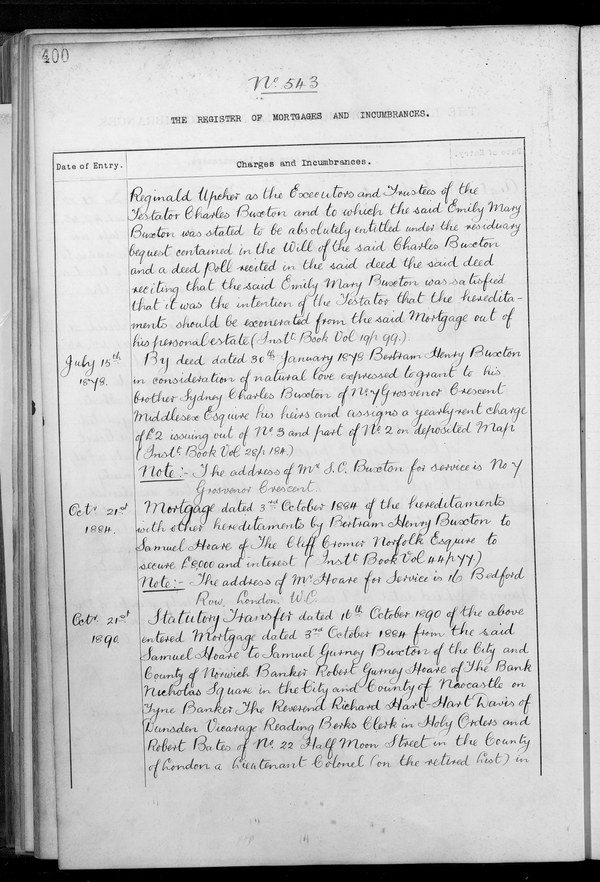 400
No. 543
THE REGISTER OF MORTGAGES AND INCUMBRANCES.
Date of Entry.
Charges and Incumbrances.
Reginald Upcher as the Executors and Trustees of the
Testator Charles Buxton and to which the said Emily Mary
Buxton was stated to be absolutely entitled under the residuary
bequest contained in the Will of the said Charles Buxton
and a deed Poll recited in the said deed the said deed
reciting that the said Emily Mary Buxton was satisfied
that it was the intention of the Testator that the heredita-
ments should be exonerated from the said Mortgage out of
his personal estate (Instt. Book Vol 19/p 99.)
July 15th 1878.
By deed dated 30th January 1878 Bertram Henry Buxton
in consideration of natural love expressed to grant to his
brother Sydney Charles Buxton of No. 7 Grosvenor Crescent
Middlesex Esquire his heirs and assigns a yearly rent charge
of £2 issuing out of No. 3 and part of No. 2 on deposited Map
(Instt. Book Vol 28/p 184.)
Note:- The address of Mr. S. C. Buxton for service is No 7
Grosvenor Crescent
Octr. 21st 1884.
Mortgage dated 3rd October 1884 of the hereditaments
with other hereditaments by Bertram Henry Buxton to
Samuel Hoare of The Cliff Cromer Norfolk Esquire to
secure £8,000 and interest (Instt. Book Vol 44/p 77.)
Note:- The address of Mr. Hoare for Service is 16 Bedford
Row, London. W.C.
Octr. 21st 1890.
Statutory Transfer dated 16th October 1890 of the above
entered Mortgage dated 3rd October 1884 from the said
Samuel Hoare to Samuel Gurney Buxton of the City and
County of Norwich Banker Robert Gurney Hoare of The Bank
Nicholas Square in the City and County of Newcastle on
Tyne Banker The Reverend Richard Hart-Hart Davis of
Dunsden Vicarage Reading Berks Clerk in Holy Orders and
Robert Bates of No. 22 Half Moon Street in the County
of London a Lieutenant Colonel (on the retired List) in